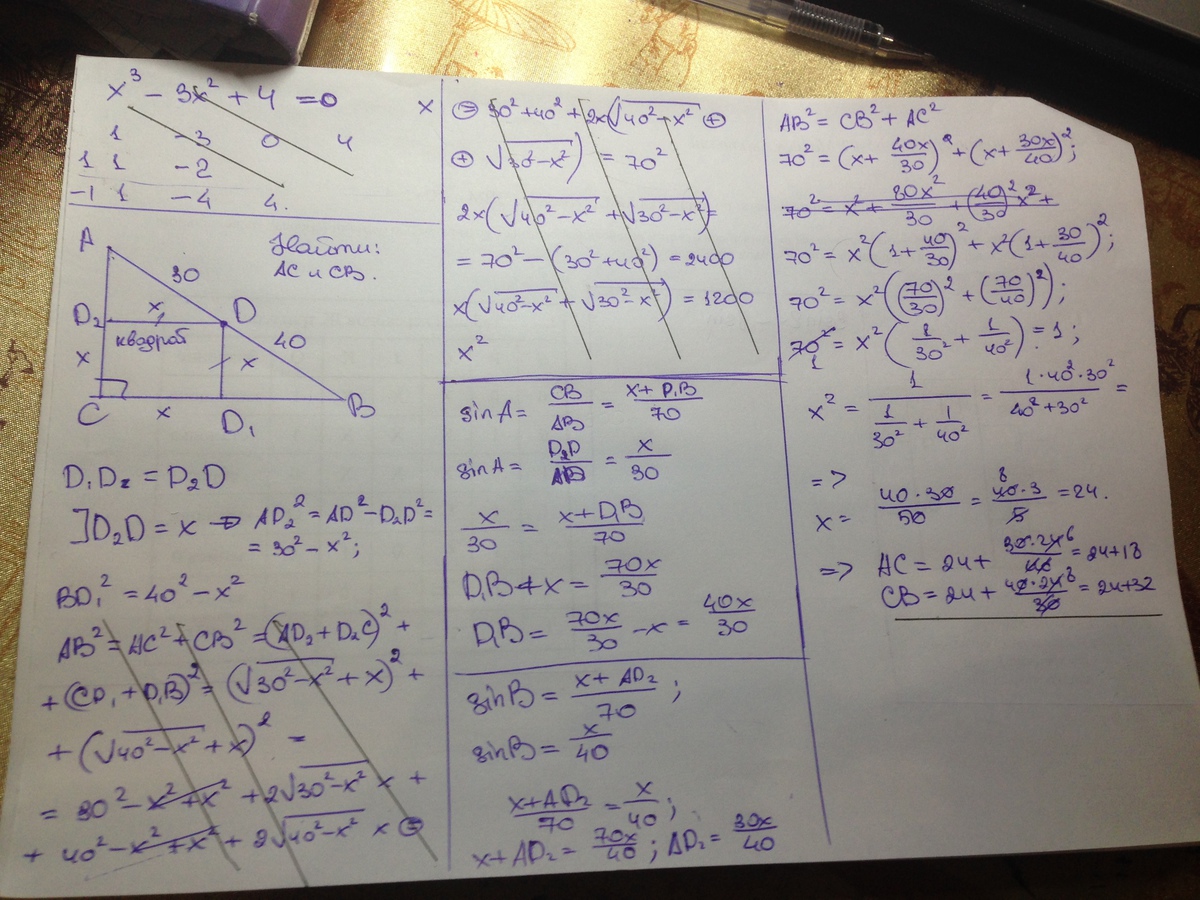 x³ − 3x² + 4 = 0
1 −3 0 4
1 1 −2
−1 1 −4 4.
Найти:
AC и CB.
A
30
D₂ x D
квадрат
40
x x
C x D₁ B
D₁D₂ = D₂D
]D₂D = x → AD₂² = AD² − D₂D² =
= 30² − x²;
BD₁² = 40² − x²
AB² = AC² + CB² = (AD₂ + D₂C)² +
+ (CD₁ + D₁B)² = (√30² − x² + x)² +
+ (√40² − x² + x)² =
= 30² − x² + x² + 2√30² − x² x +
+ 40² − x² + x² + 2√40² − x² x ⊜
x
⊜ 30² + 40² + 2x(√40² − x² ⊕
⊕ √30² − x²) = 70²
2x(√40² − x² + √30² − x²) =
= 70² − (30² + 40²) = 2400
x(√40² − x² + √30² − x²) = 1200
x²
sin A = CB/AB = (x + D₁B)/70
sin A = D₂D/AD = x/30
x/30 = (x + D₁B)/70
D₁B + x = 70x/30
D₁B = 70x/30 − x = 40x/30
sin B = (x + AD₂)/70 ;
sin B = x/40
(x + AD₂)/70 = x/40 ;
x + AD₂ = 70x/40 ; AD₂ = 30x/40
AB² = CB² + AC²
70² = (x + 40x/30)² + (x + 30x/40)²;
70² = x² + 80x²/30 + (40/30)² x² +
70² = x²(1 + 40/30)² + x²(1 + 30/40)²;
70² = x²((70/30)² + (70/40)²);
70² 1 = x²(1/30² + 1/40²) = 1;
x² = 1/(1/30² + 1/40²) = 1·40²·30²/(40² + 30²) =
=>
x = 40·30/50 = 40·3/5 8 = 24.
=> AC = 24 + 30·24/40 6 = 24 + 18
CB = 24 + 40·24/30 8 = 24 + 32